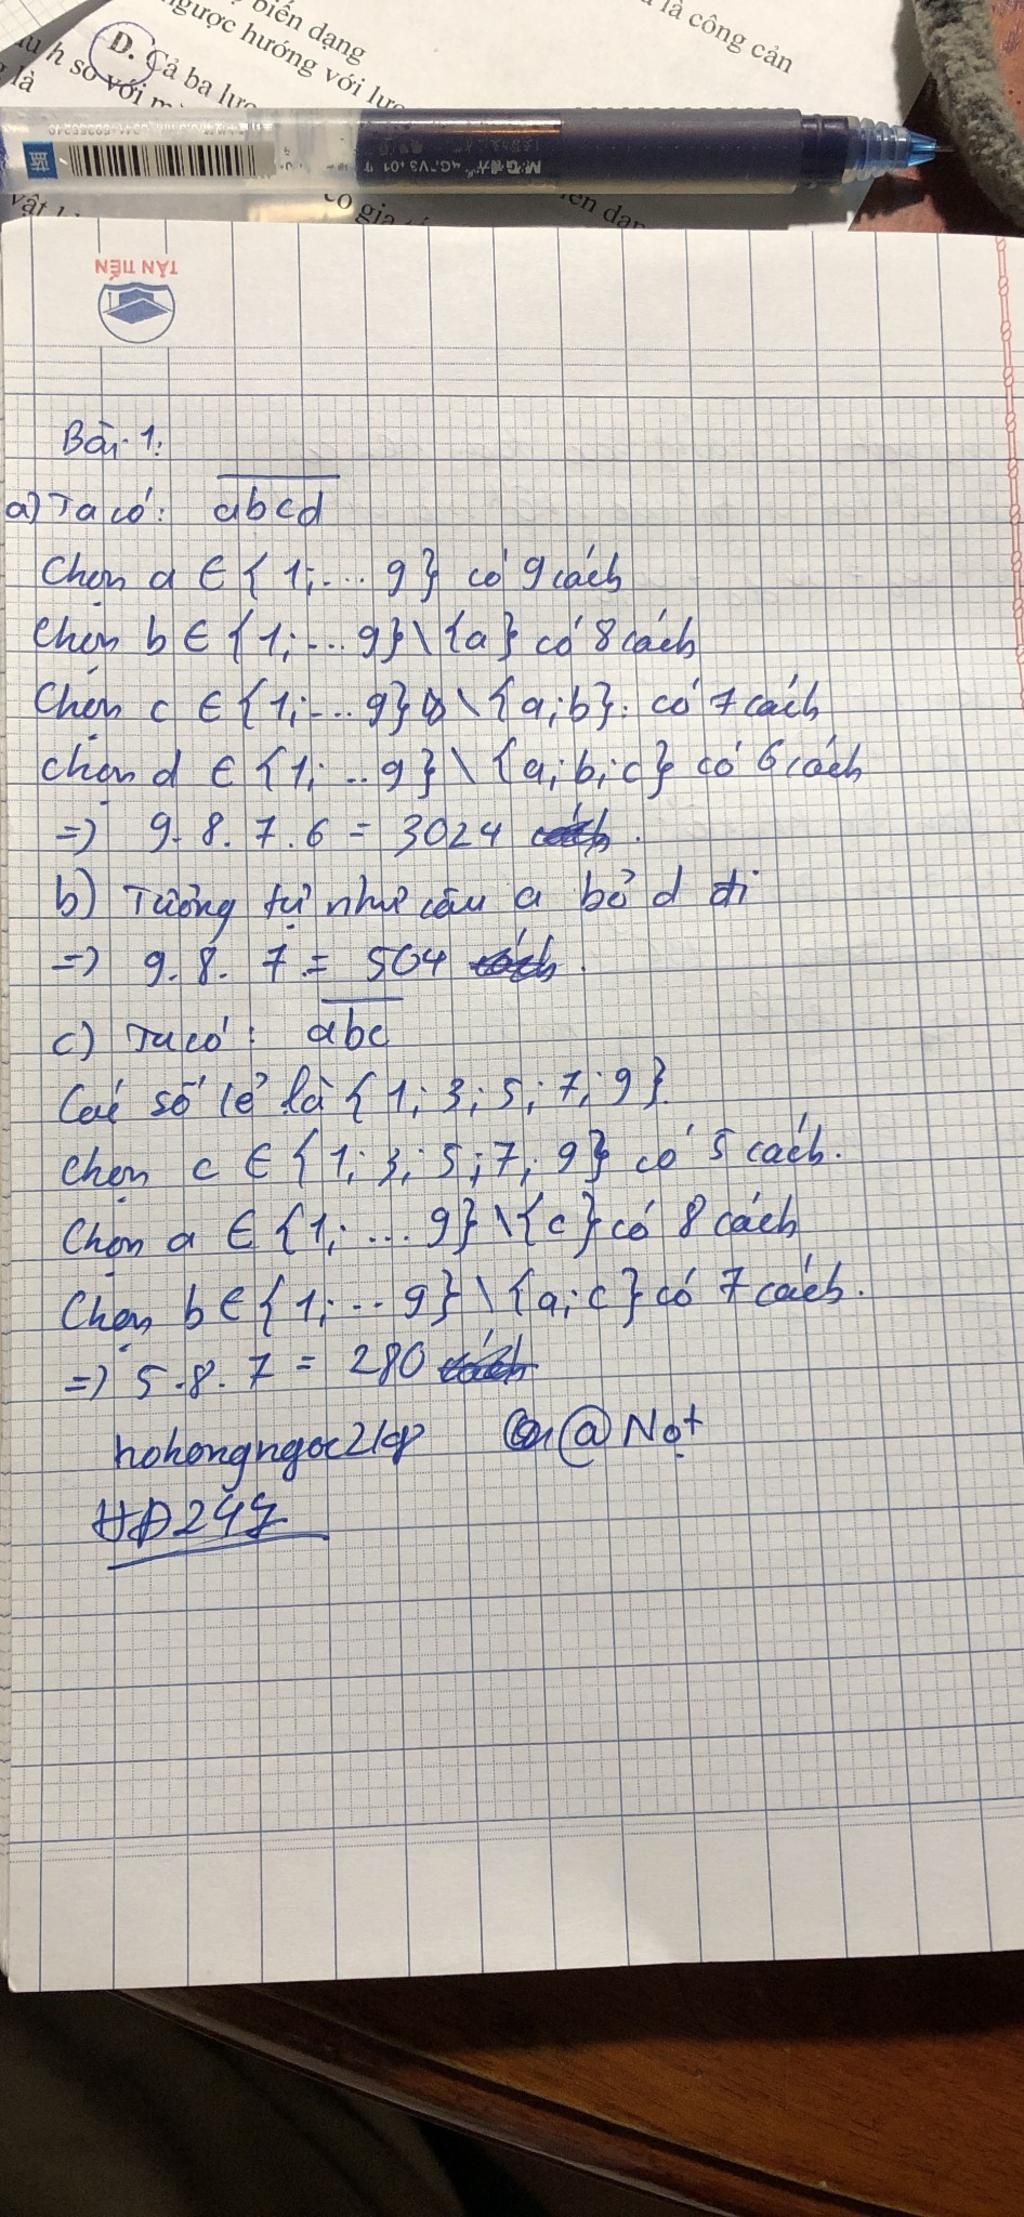 biến dạng
ngược hướng với lực
là công cản
D. Cả ba lực
h so với
là
vật
có gia
TÂN TIẾN
Bài 1:
a) Ta có: abcd
Chọn a ∈ {1;... 9} có 9 cách
Chọn b ∈ {1;... 9} \ {a} có 8 cách
Chọn c ∈ {1;... 9} \ {a;b}. có 7 cách
chọn d ∈ {1;.. 9} \ {a;b;c} có 6 cách
=> 9.8.7.6 = 3024 cách.
b) Tương tự như câu a bỏ d đi
=> 9.8.7 = 504 cách.
c) Ta có: abc
Các số lẻ là {1;3;5;7;9}.
Chọn c ∈ {1;3;5;7;9} có 5 cách.
Chọn a ∈ {1;... 9} \ {c} có 8 cách
Chọn b ∈ {1;.. 9} \ {a;c} có 7 cách.
=> 5.8.7 = 280 cách
@ Nọt
HĐ247